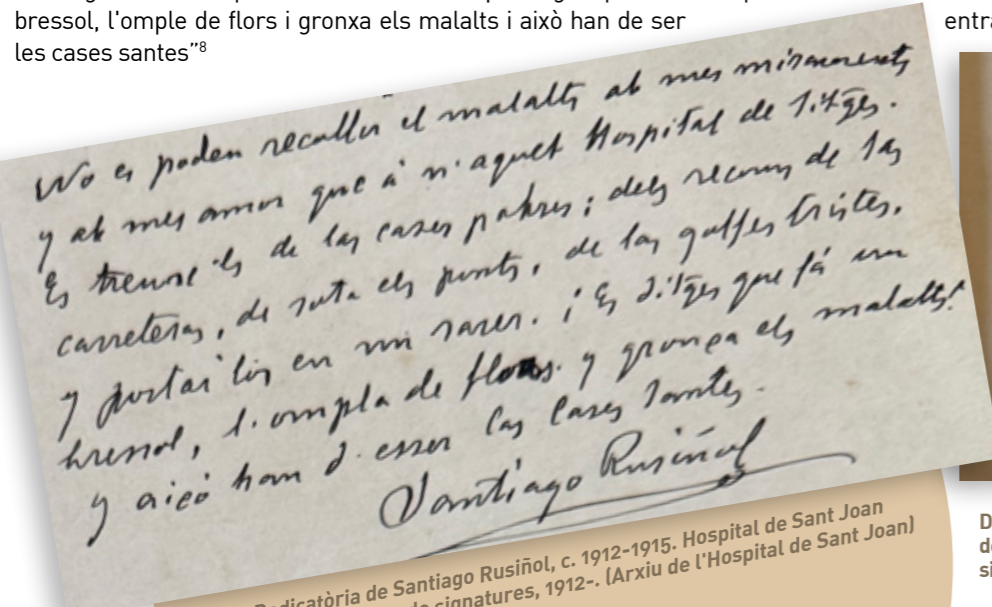 bressol, l'omple de flors i gronxa els malalts i això han de ser
les cases santes”8
No es poden recullir el malalts ab mes miraments
y ab mes amor que á n'aquet Hospital de Sitges.
Es treure'ls de las cases pobres; dels recons de las
carreteras, de sota els ponts, de las golfes tristes,
y portarlos en un raser. ¡Es Sitges que fá un
bressol, l'ompla de flors y gronça els malalts!
y aicó han d'esser las Cases Santes.
Santiago Rusiñol
Dedicatòria de Santiago Rusiñol, c. 1912-1915. Hospital de Sant Joan
de signatures, 1912-. (Arxiu de l'Hospital de Sant Joan)